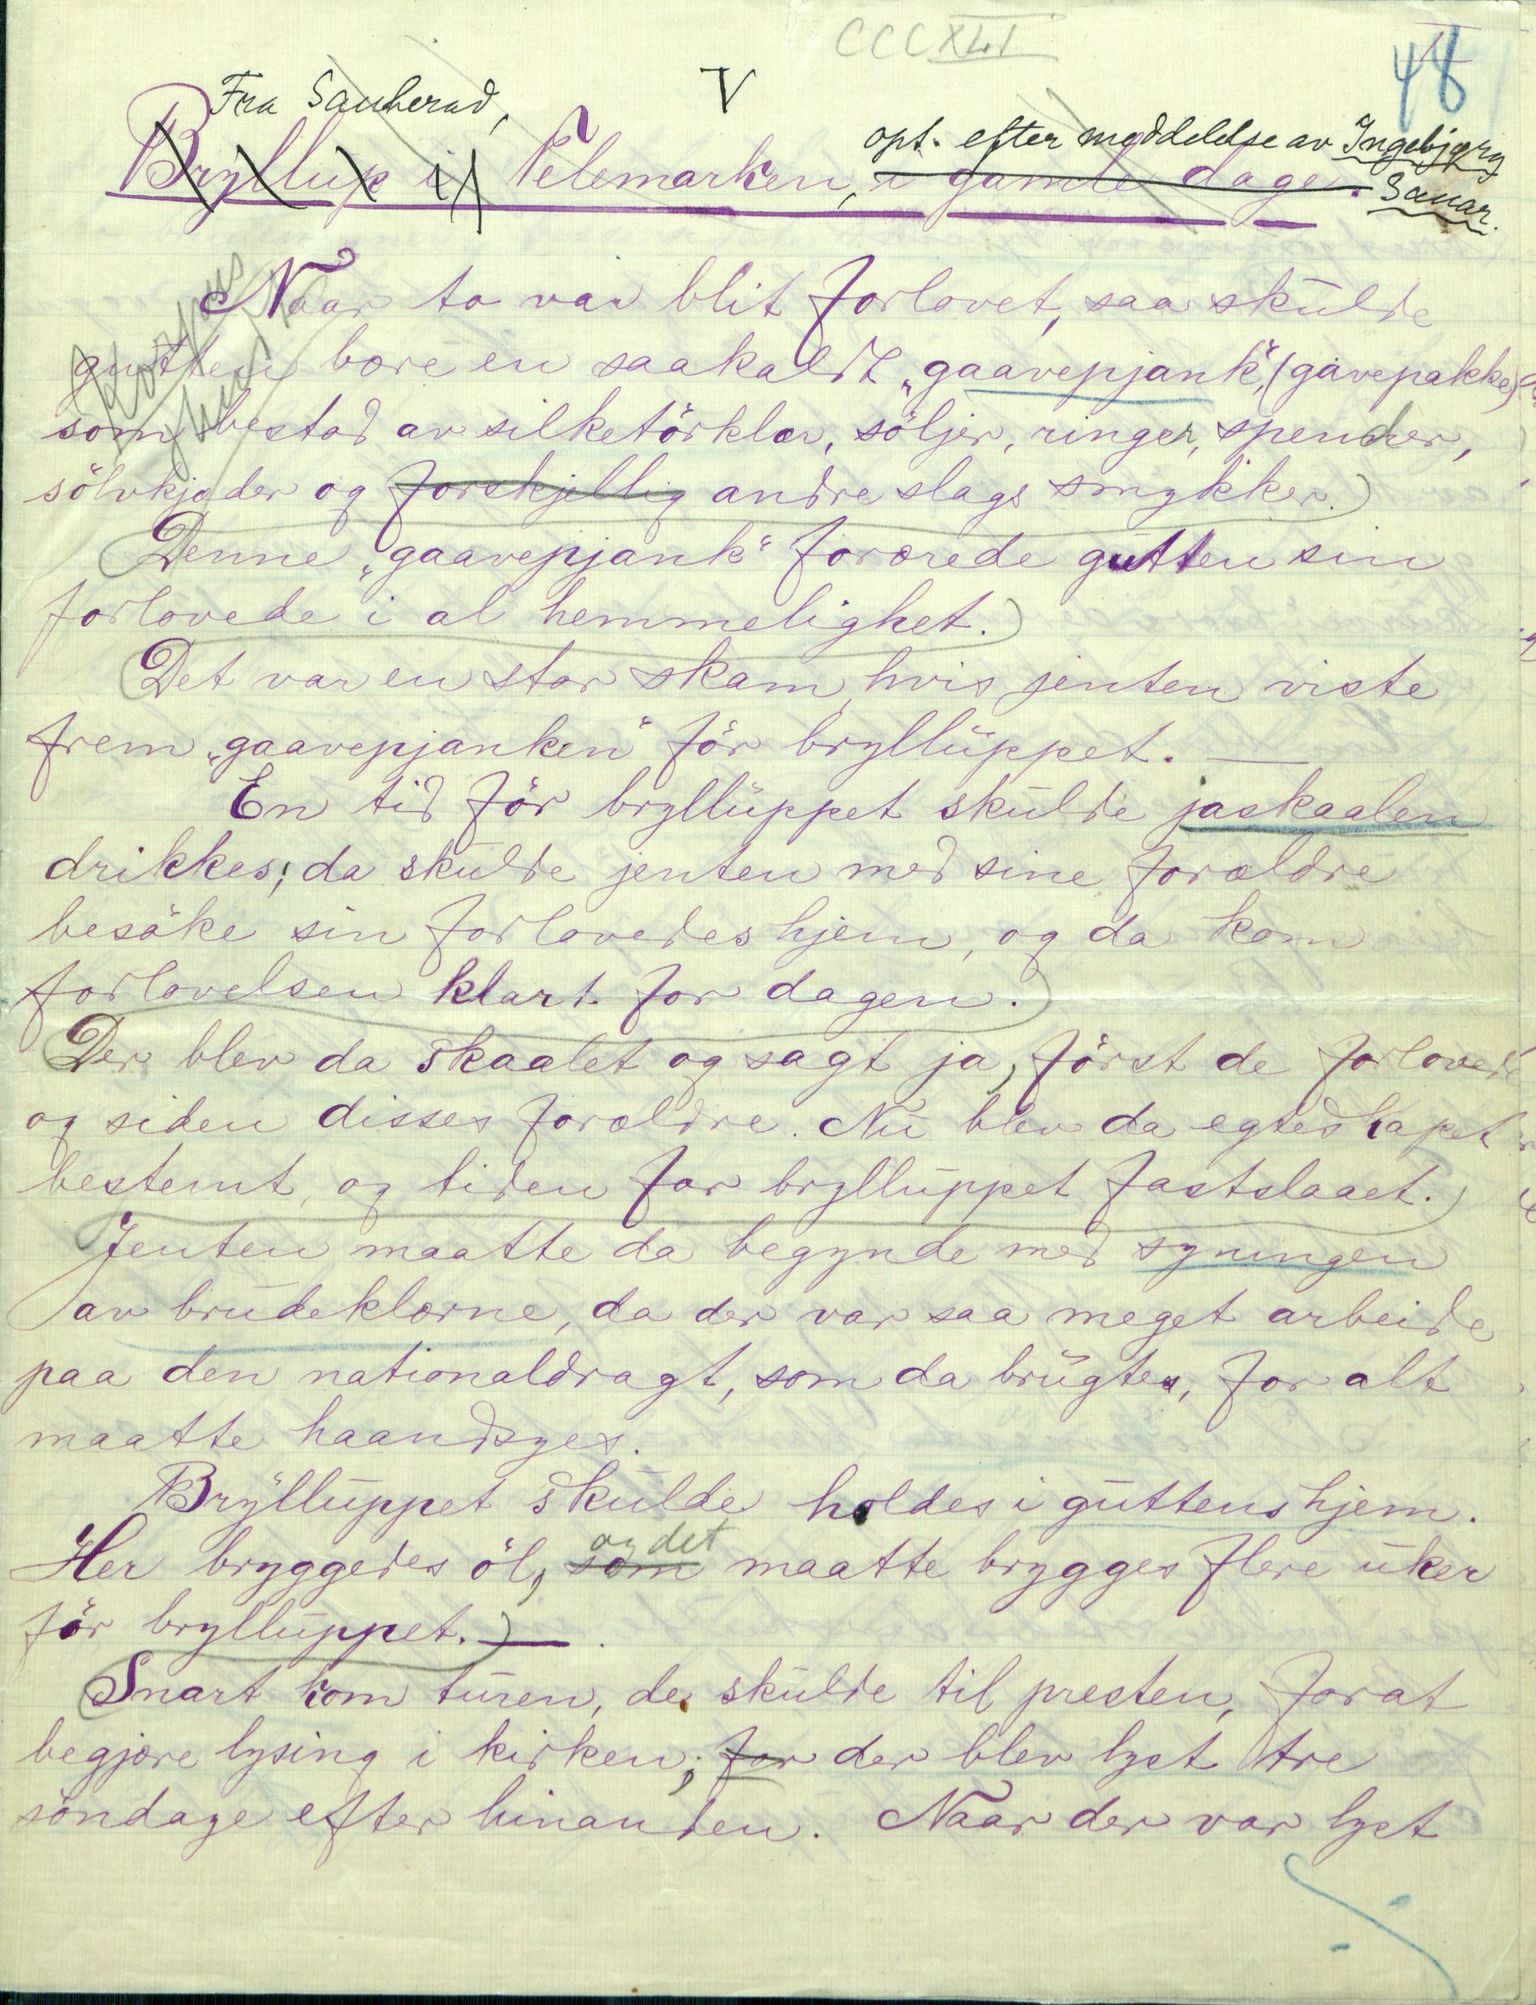 CCCXLI
48
Fra Sauherad,
V
opt. efter meddelelse av Ingebjørg
Sanar.
Bryllup i Telemarken, i gamle dage.
Naar to var blit forlovet, saa skulde
gutten bære en saakaldt „gaavepjank“, (gavepakke)
som bestod av silketörklær, söljer, ringer, spender,
sölvkjeder og forskjellig andre slags smykker.
Denne „gaavepjank“ forærede gutten sin
forlovede i al hemmelighet.
Det var en stor skam, hvis jenten viste
frem „gaavepjanken“ för brylluppet. —
En tid för brylluppet skulde jaskaalen
drikkes; da skulde jenten med sine forældre
besöke sin forlovedes hjem, og da kom
forlovelsen klart for dagen.
Der blev da skaalet og sagt ja, först de forlovede
og siden disses forældre. Nu blev da egteskapet
bestemt, og tiden for brylluppet fastslaaet.
Jenten maatte da begynde med syningen
av brudeklærne, da der var saa meget arbeide
paa den nationaldragt, som da brugtes, for alt
maatte haandsyes.
Brylluppet skulde holdes i guttens hjem.
og det
Her bryggedes öl, som maatte brygges flere uker
för brylluppet. —
Snart kom turen, de skulde til presten, forat
begjære lysing i kirken; for der blev lyst tre
söndage efter hinanden. Naar der var lyst